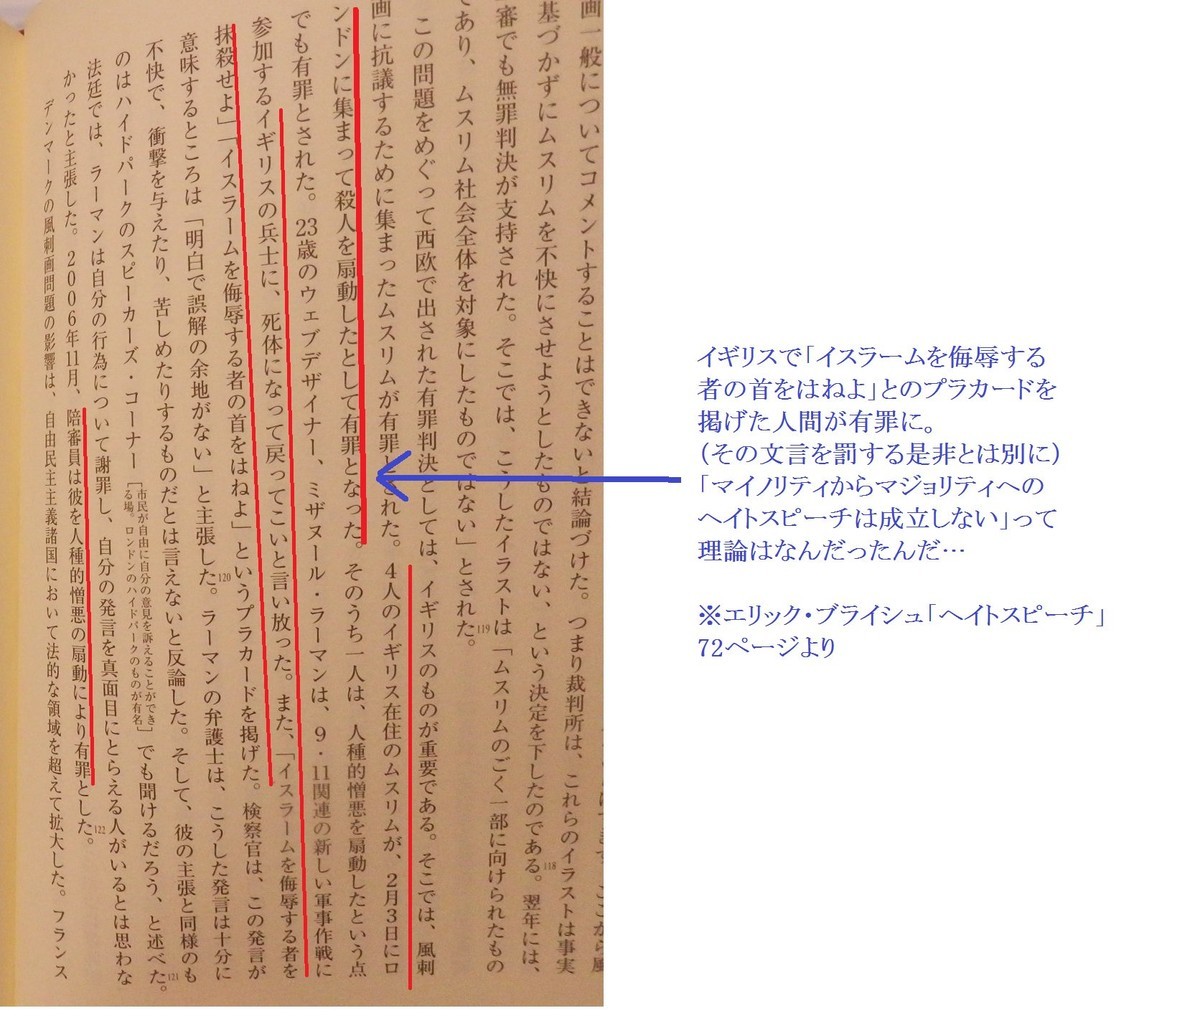 画一般についてコメントすることはできないと結論づけた。つまり裁判所は、これらのイラストは事実
基づかずにムスリムを不快にさせようとしたものではない、という決定を下したのである。118翌年には、
審でも無罪判決が支持された。そこでは、こうしたイラストは「ムスリムのごく一部に向けられたもの
であり、ムスリム社会全体を対象にしたものではない」とされた。119
この問題をめぐって西欧で出された有罪判決としては、イギリスのものが重要である。そこでは、風刺
画に抗議するために集まったムスリムが有罪とされた。4人のイギリス在住のムスリムが、2月3日にロ
ンドンに集まって殺人を扇動したとして有罪となった。そのうち一人は、人種的憎悪を扇動したという点
でも有罪とされた。23歳のウェブデザイナー、ミザヌール・ラーマンは、9・11関連の新しい軍事作戦に
参加するイギリスの兵士に、死体になって戻ってこいと言い放った。また、「イスラームを侮辱する者を
抹殺せよ」「イスラームを侮辱する者の首をはねよ」というプラカードを掲げた。検察官は、この発言が
意味するところは「明白で誤解の余地がない」と主張した。120ラーマンの弁護士は、こうした発言は十分に
不快で、衝撃を与えたり、苦しめたりするものだとは言えないと反論した。そして、彼の主張と同様のも
のはハイドパークのスピーカーズ・コーナー［市民が自由に自分の意見を訴えることができ
る場。ロンドンのハイドパークのものが有名］でも聞けるだろう、と述べた。121
法廷では、ラーマンは自分の行為について謝罪し、自分の発言を真面目にとらえる人がいるとは思わな
かったと主張した。2006年11月、陪審員は彼を人種的憎悪の扇動により有罪とした。122
デンマークの風刺画問題の影響は、自由民主主義諸国において法的な領域を超えて拡大した。フランス
イギリスで「イスラームを侮辱する
者の首をはねよ」とのプラカードを
掲げた人間が有罪に。
（その文言を罰する是非とは別に）
「マイノリティからマジョリティへの
ヘイトスピーチは成立しない」って
理論はなんだったんだ…
※エリック・ブライシュ「ヘイトスピーチ」
72ページより